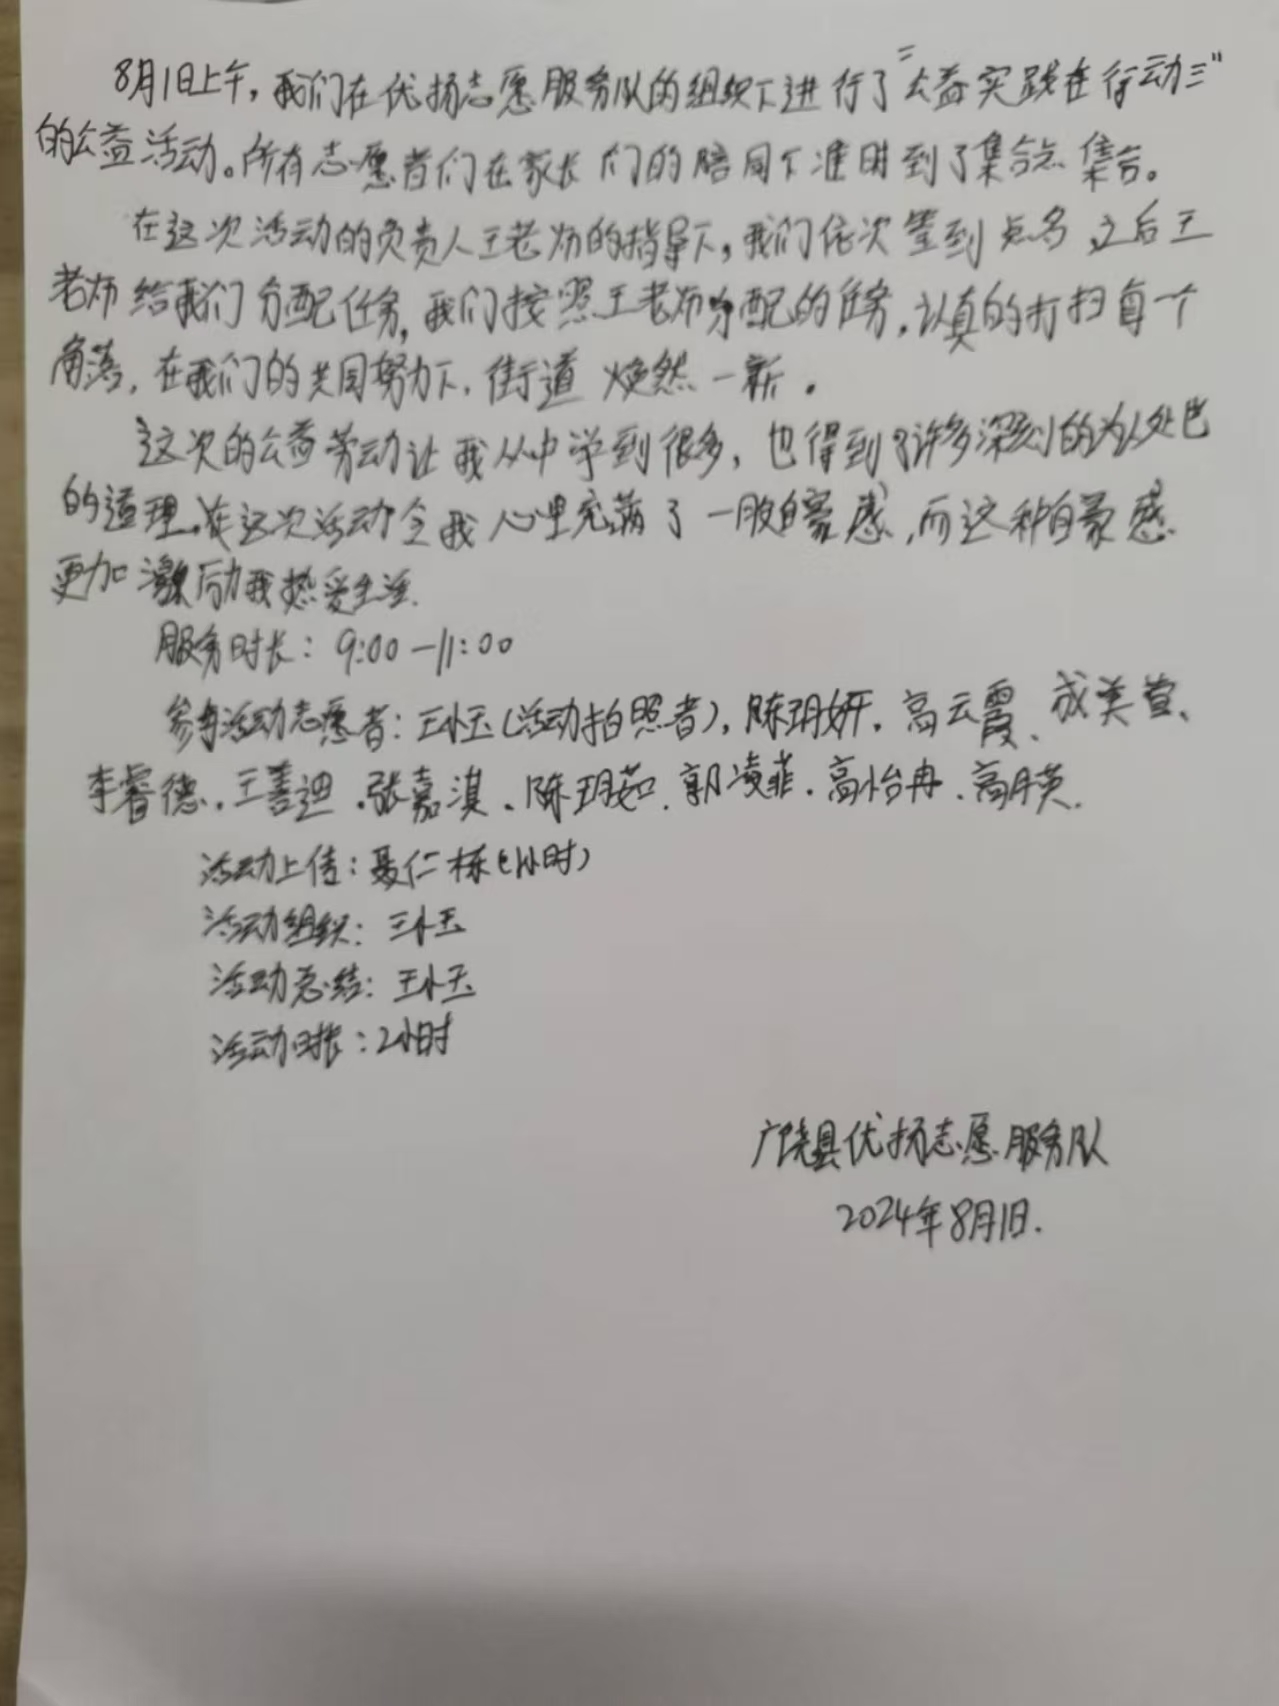 8月1日上午，我们在优扬志愿服务队的组织下进行了“公益实践在行动三”
的公益活动。所有志愿者们在家长们的陪同下准时到了集合点集合。
在这次活动的负责人王老师的指导下，我们依次签到点名，之后王
老师给我们分配任务，我们按照王老师分配的任务，认真的打扫每个
角落，在我们的共同努力下，街道焕然一新。
这次的公益劳动让我从中学到很多，也得到了许多深刻的为人处
的道理。在这次活动令我心里充满了一股自豪感，而这种自豪感
更加激励我热爱生活.
服务时长：9:00—11:00
参与活动志愿者：王小玉（活动拍照者），陈玥妍，高云霞、成美萱、
李睿德，王善迪，张嘉淇、陈玥茹，郭凌菲，高怡冉、高月英.
活动上传：聂仁栋（1小时）
活动组织：王小玉
活动总结：王小玉
活动时长：2小时
广饶县优扬志愿服务队
2024年8月1日.